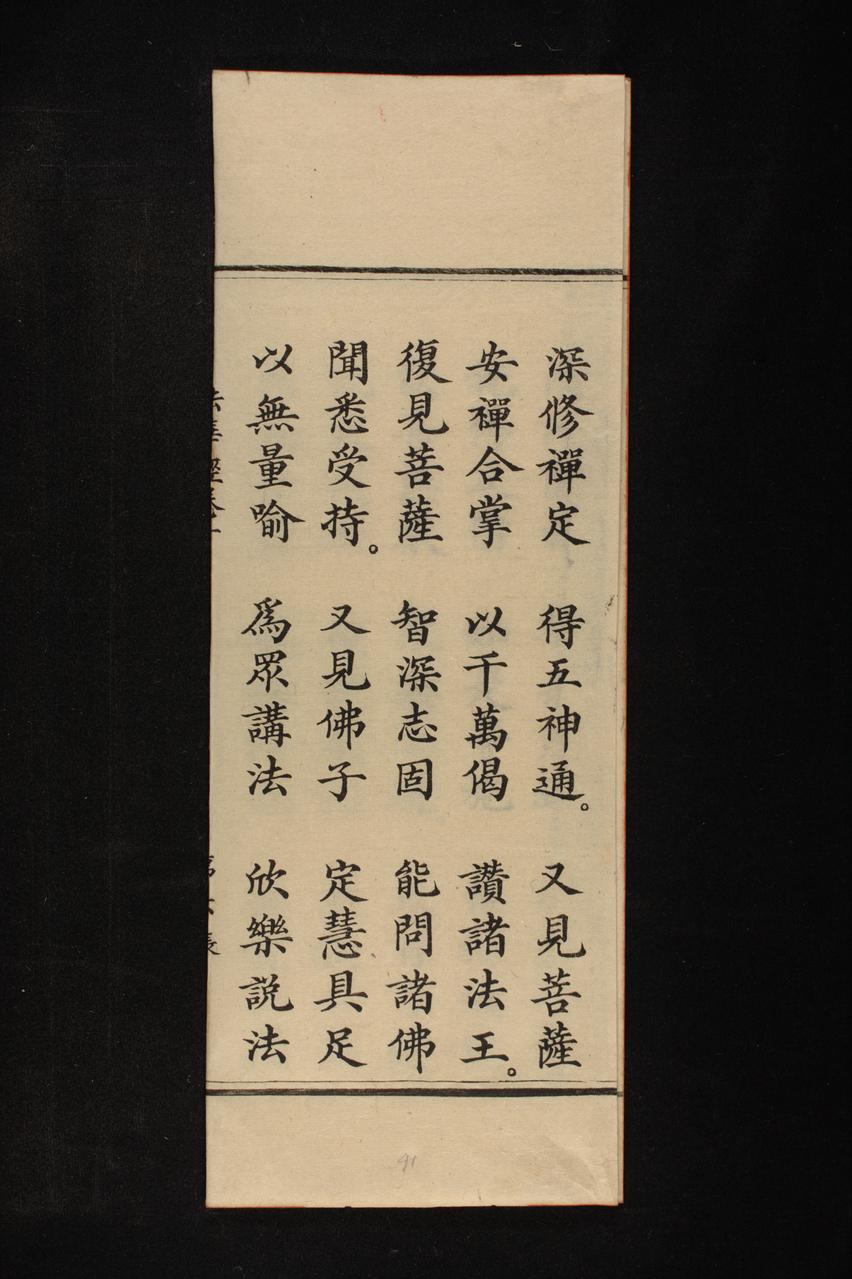 深修禪定　得五神通。　又見菩薩
安禪合掌　以千萬偈　讚諸法王。
復見菩薩　智深志固　能問諸佛
聞悉受持。　又見佛子　定慧具足
以無量喻　爲眾講法　欣樂説法
41